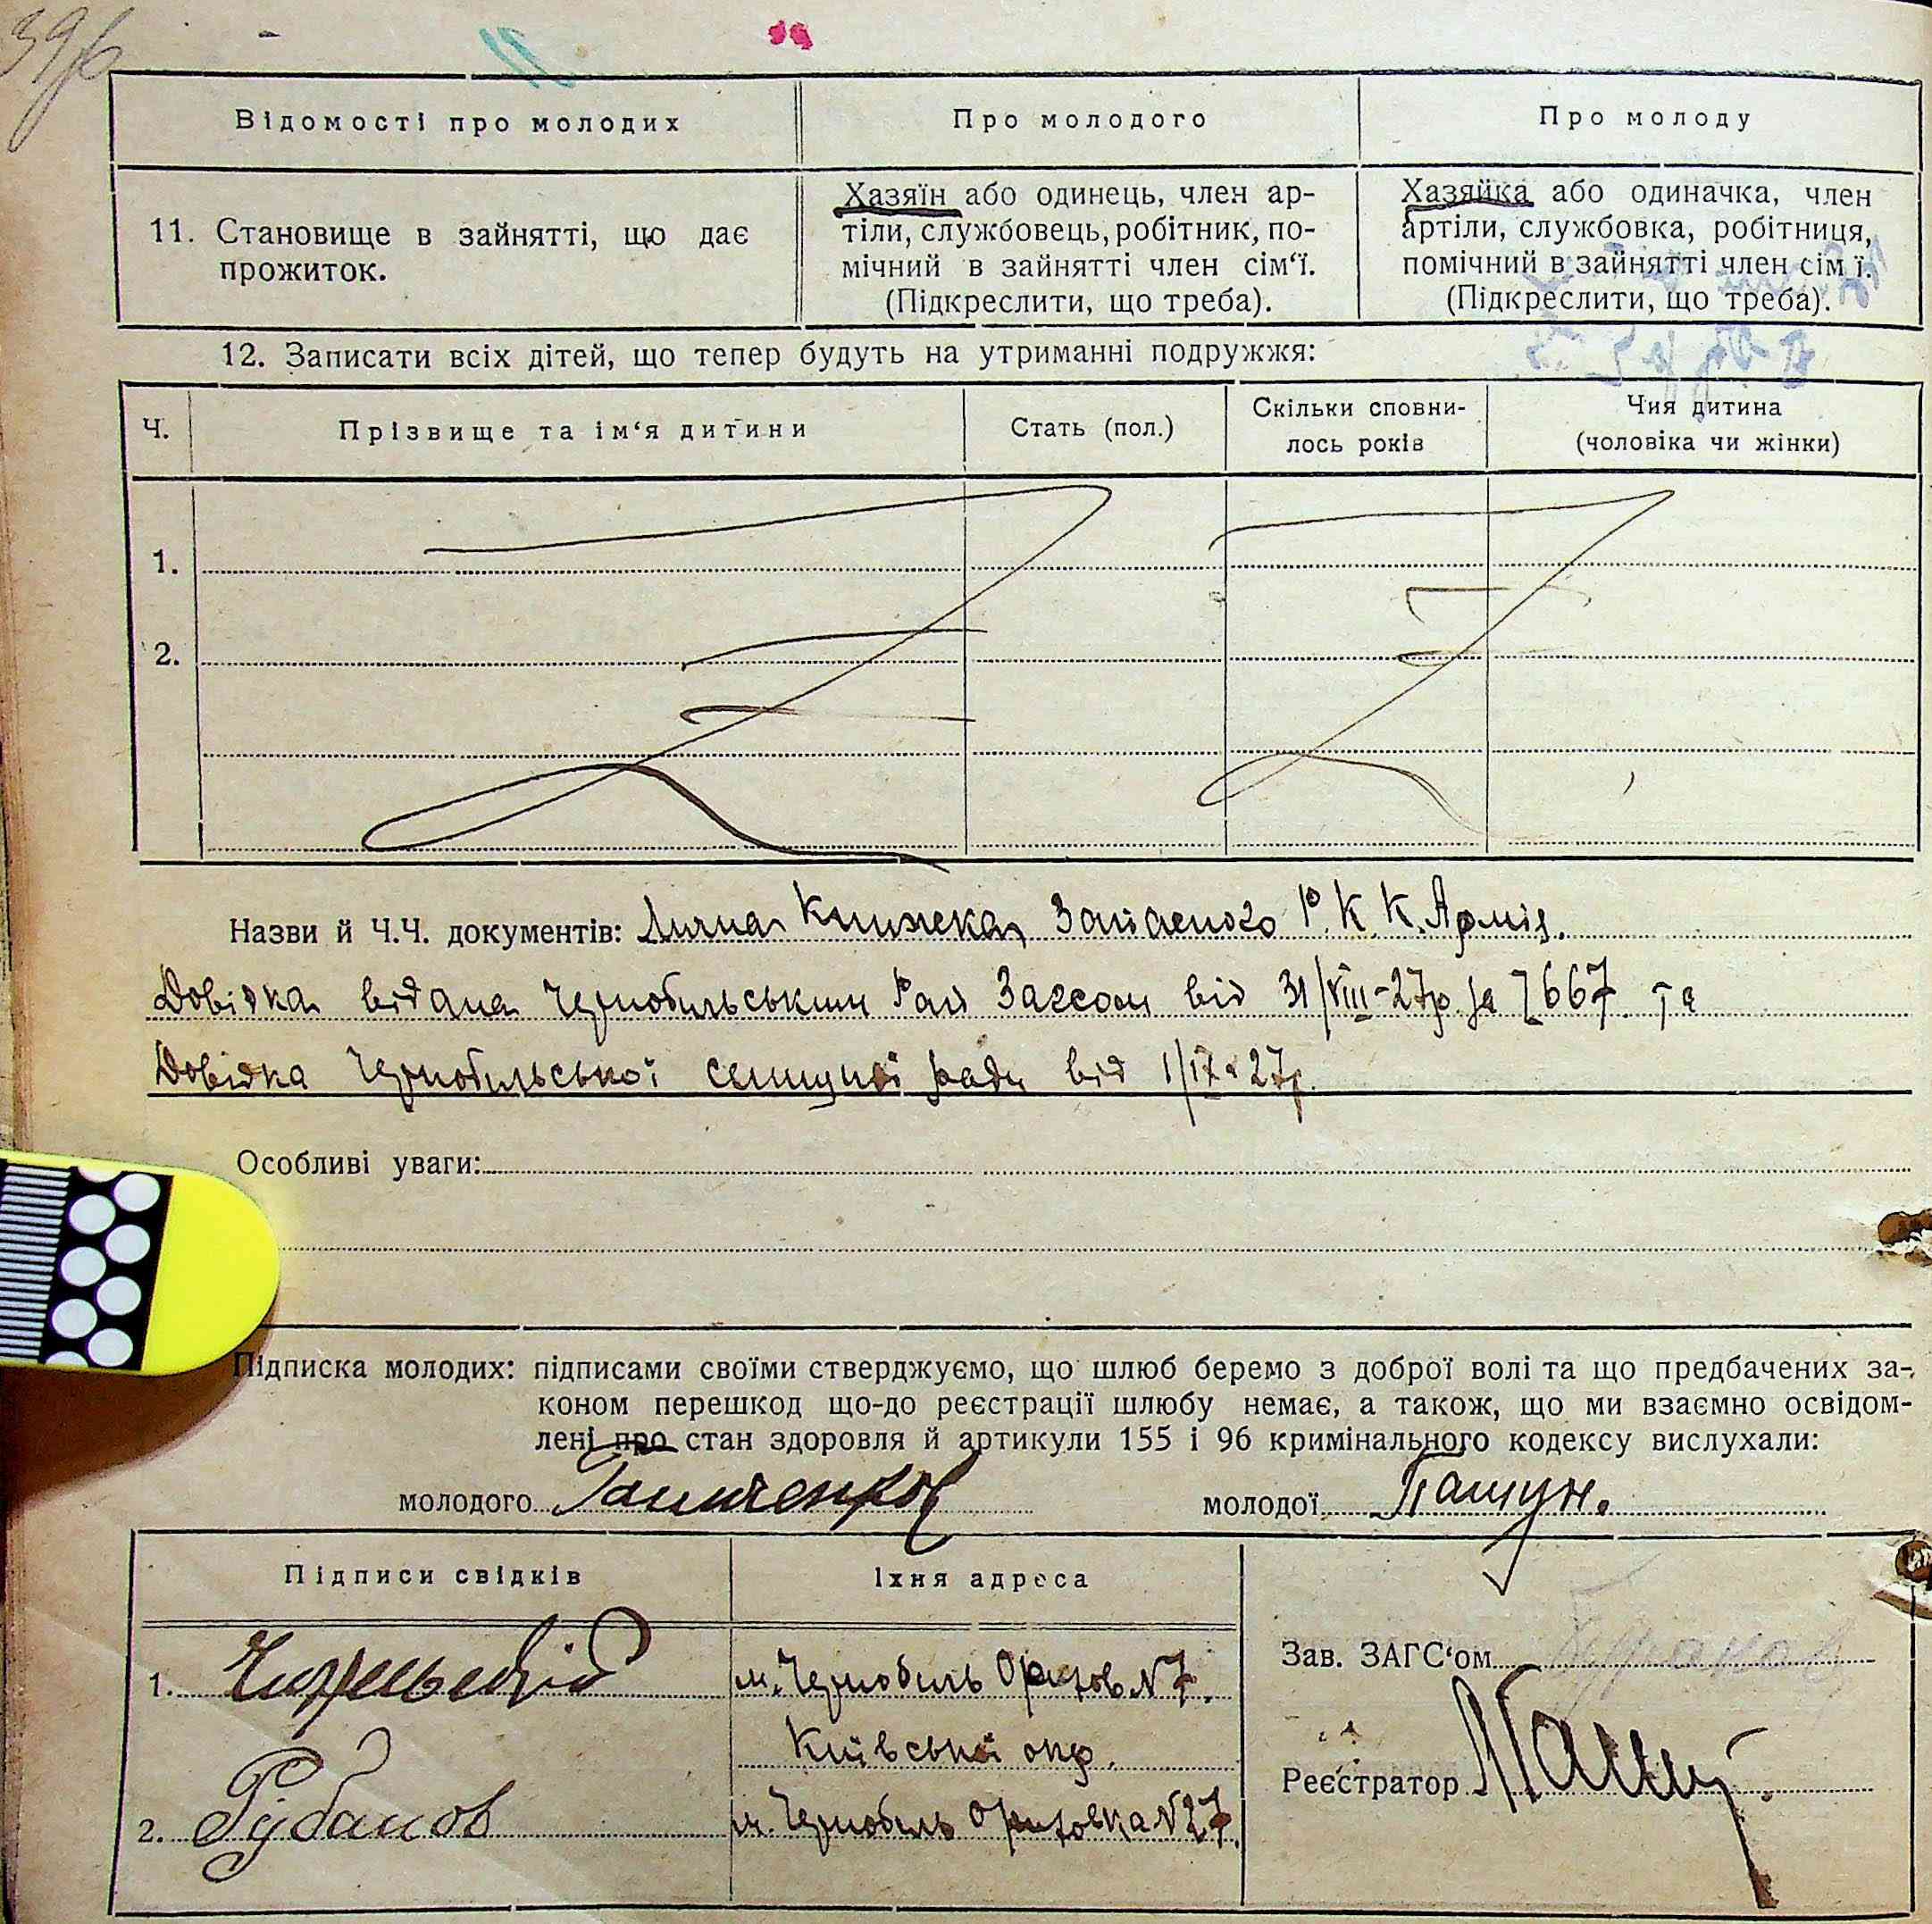 Відомості про молодих
Про молодого
Про молоду
11. Становище в зайнятті, що дає
прожиток.
Хазяїн або одинець, член ар-
тіли, службовець, робітник, по-
мічний в зайнятті член сім‘ї.
(Підкреслити, що треба).
Хазяйка або одиначка, член
артіли, службовка, робітниця,
помічний в зайнятті член сім ї.
(Підкреслити, що треба).
12. Записати всіх дітей, що тепер будуть на утриманні подружжя:
Ч.
Прізвище та ім‘я дитини
Стать (пол.)
Скільки сповни-
лось років
Чия дитина
(чоловіка чи жінки)
1.
2.
Назви й Ч.Ч. документів: Лична Книжека Запасного Р.К.К.Армія.
Довідка видана Чернобильським Рай Загсом від 31/VIII-27р. за 7667 та
Довідка Чернобильської селищної ради від 1/IX-27р.
Особливі уваги:
Підписка молодих: підписами своїми стверджуємо, що шлюб беремо з доброї волі та що предбачених за-
коном перешкод що-до реєстрації шлюбу немає, а також, що ми взаємно освідом-
лені про стан здоровля й артикули 155 і 96 кримінального кодексу вислухали:
молодого
молодої
Підписи свідків
Їхня адреса
1.
м. Чернобиль № 7.
Київської окр.
2. Рубанов
м. Чернобиль № 27.
Зав. ЗАГС‘ом
Реєстратор